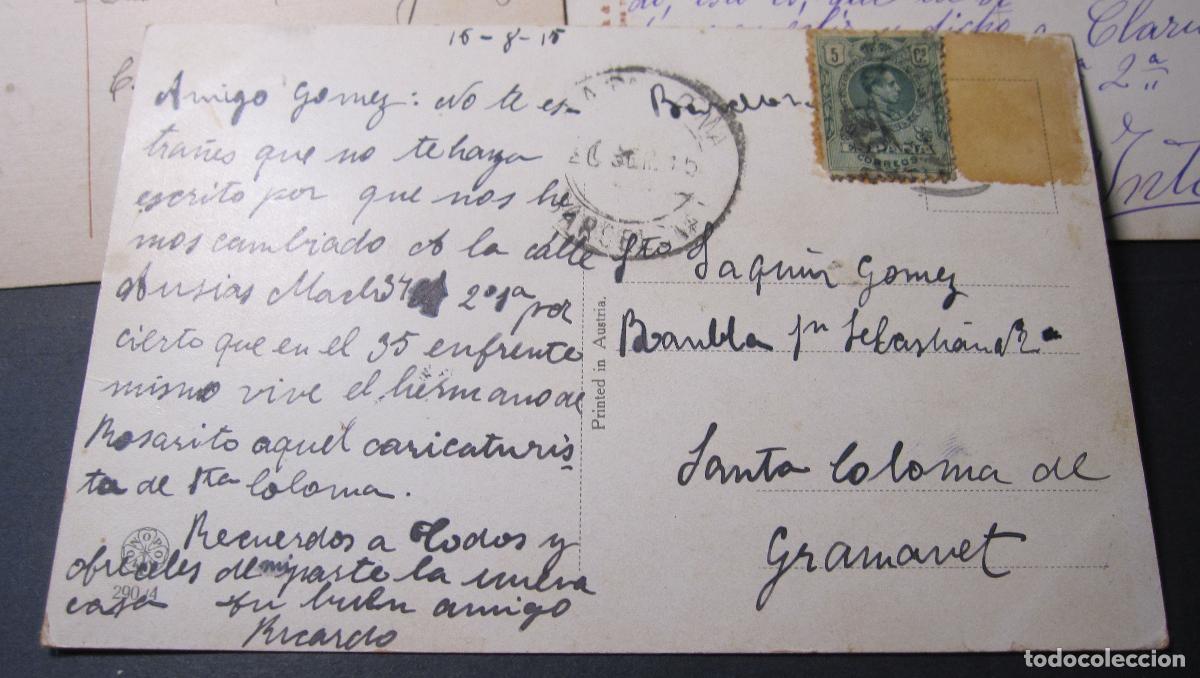 15-8-15
Amigo Gomez: No te es-
trañes que no te haya
escrito por que nos he
mos cambiado A la calle
Ausias March 37 2º 1ª por
cierto que en el 35 enfrente
mismo vive el hermano de
Rosarito aquel caricaturis-
ta de Sta Coloma.
Recuerdos a Todos y
ofreceles de mi parte la nueva
casa tu buen amigo
Ricardo
290/4
Printed in Austria.
Barcelona
5 Cs
ESPAÑA
CORREOS
BARCELONA
Sto Jaquin Gomez
Rambla Sn Sebastián
Santa Coloma de
Gramanet
Clara
2ª
todocoleccion